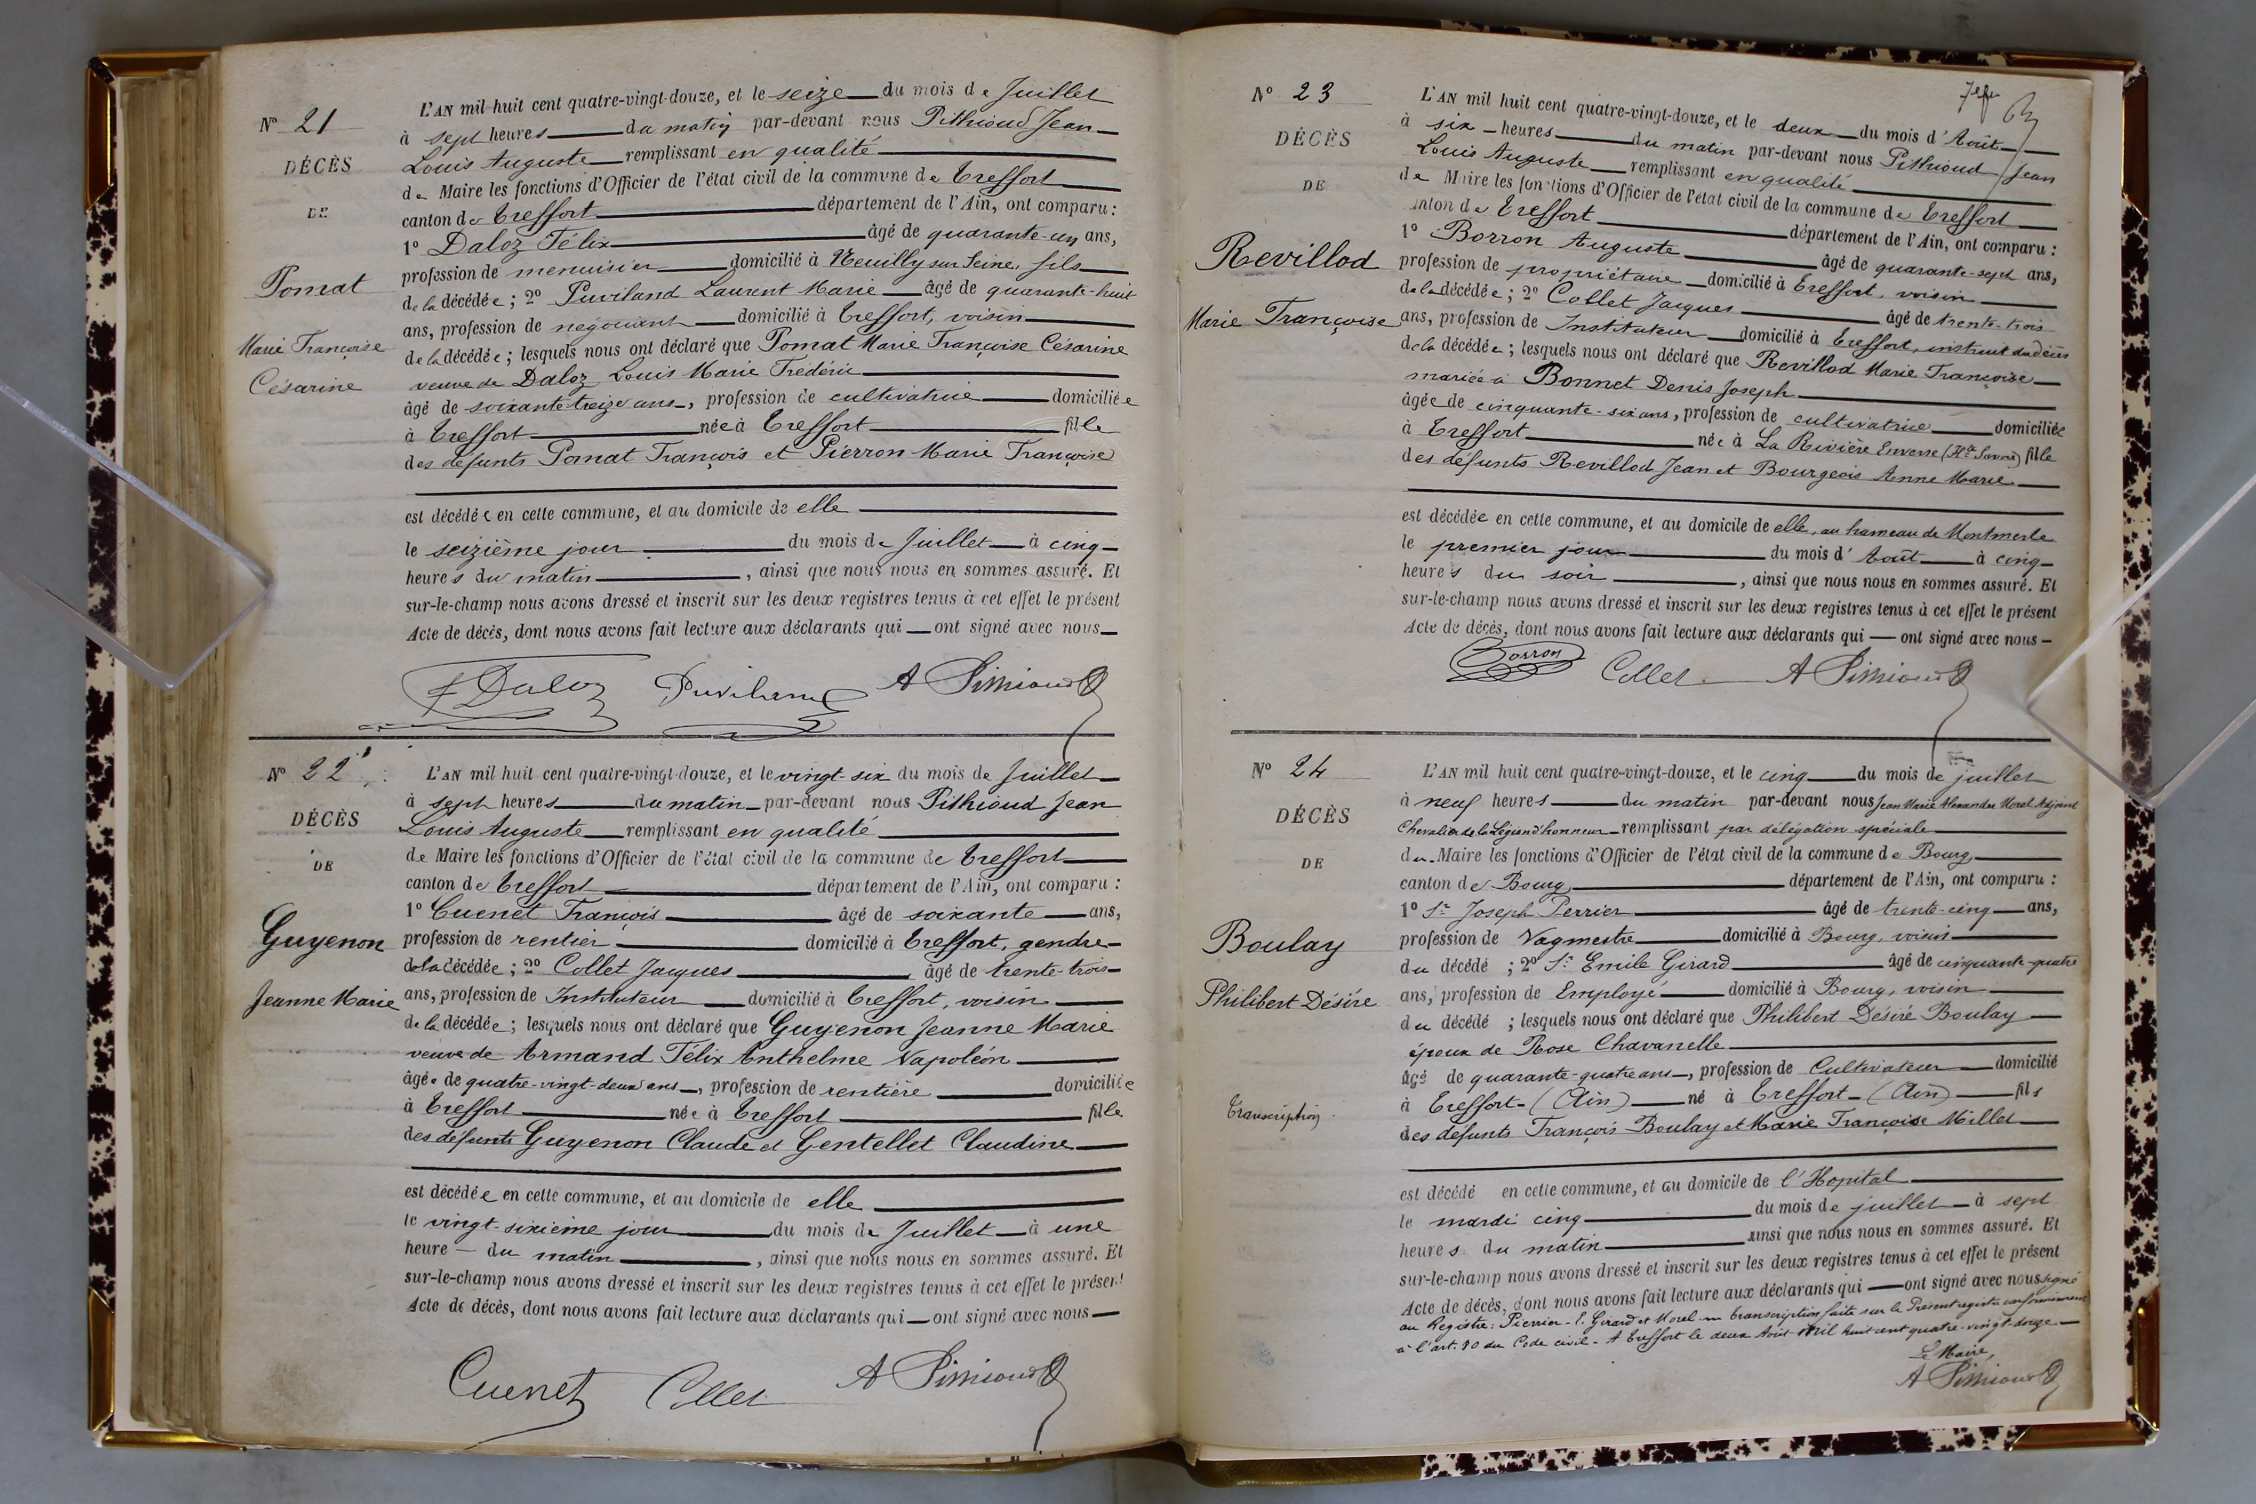 N° 21
DÉCÈS
DE
Pomat
Marie Françoise
Césarine
L'AN mil huit cent quatre-vingt-douze, et le seize du mois de Juillet
à sept heures du matin par-devant nous Pithioud Jean
Louis Auguste remplissant en qualité
de Maire les fonctions d'Officier de l'état civil de la commune de Treffort
canton de Treffort département de l'Ain, ont comparu :
1° Daloz Félix âgé de quarante-un ans,
profession de menuisier domicilié à Neuilly sur Seine, fils
de la décédée ; 2° Puviland Laurent Marie âgé de quarante-huit
ans, profession de négociant domicilié à Treffort, voisin
de la décédée ; lesquels nous ont déclaré que Pomat Marie Françoise Césarine
veuve de Daloz Louis Marie Frédéric
âgé de soixante-treize ans, profession de cultivatrice domiciliée
à Treffort née à Treffort fille
des défunts Pomat François et Pierron Marie Françoise
est décédée en cette commune, et au domicile de elle
le seizième jour du mois de Juillet à cinq
heures du matin, ainsi que nous nous en sommes assuré. Et
sur-le-champ nous avons dressé et inscrit sur les deux registres tenus à cet effet le présent
Acte de décès, dont nous avons fait lecture aux déclarants qui ont signé avec nous
F Daloz Puviland A Pithioud
N° 22
DÉCÈS
DE
Guyenon
Jeanne Marie
L'AN mil huit cent quatre-vingt-douze, et le vingt-six du mois de Juillet
à sept heures du matin par-devant nous Pithioud Jean
Louis Auguste remplissant en qualité
de Maire les fonctions d'Officier de l'état civil de la commune de Treffort
canton de Treffort département de l'Ain, ont comparu :
1° Cuenet François âgé de soixante ans,
profession de rentier domicilié à Treffort, gendre
de la décédée ; 2° Collet Jacques âgé de trente-trois
ans, profession de Instituteur domicilié à Treffort, voisin
de la décédée ; lesquels nous ont déclaré que Guyenon Jeanne Marie
veuve de Armand Félix Anthelme Napoléon
âgée de quatre-vingt-deux ans, profession de rentière domiciliée
à Treffort née à Treffort fille
des défunts Guyenon Claude et Gentellet Claudine
est décédée en cette commune, et au domicile de elle
le vingt-sixième jour du mois de Juillet à une
heure du matin, ainsi que nous nous en sommes assuré. Et
sur-le-champ nous avons dressé et inscrit sur les deux registres tenus à cet effet le présent
Acte de décès, dont nous avons fait lecture aux déclarants qui ont signé avec nous
Cuenet Collet A Pithioud
N° 23
DÉCÈS
DE
Revillod
Marie Françoise
L'AN mil huit cent quatre-vingt-douze, et le deux du mois d'Août
à six heures du matin par-devant nous Pithioud Jean
Louis Auguste remplissant en qualité
de Maire les fonctions d'Officier de l'état civil de la commune de Treffort
canton de Treffort département de l'Ain, ont comparu :
1° Borron Auguste âgé de quarante-sept ans,
profession de propriétaire domicilié à Treffort, voisin
de la décédée ; 2° Collet Jacques âgé de trente-trois
ans, profession de Instituteur domicilié à Treffort, instruit du décès
de la décédée ; lesquels nous ont déclaré que Revillod Marie Françoise
mariée à Bonnet Denis Joseph
âgée de cinquante-six ans, profession de cultivatrice domiciliée
à Treffort née à La Rivière Enverse (Hte Savoie) fille
des défunts Revillod Jean et Bourgeois Anne Marie
est décédée en cette commune, et au domicile de elle, au hameau de Montmerle
le premier jour du mois d'Août à cinq
heures du soir, ainsi que nous nous en sommes assuré. Et
sur-le-champ nous avons dressé et inscrit sur les deux registres tenus à cet effet le présent
Acte de décès, dont nous avons fait lecture aux déclarants qui ont signé avec nous
Borron Collet A Pithioud
N° 24
DÉCÈS
DE
Boulay
Philibert Désiré
Transcription
L'AN mil huit cent quatre-vingt-douze, et le cinq du mois de juillet
à neuf heures du matin par-devant nous Jean Marie Alexandre Morel Adjoint
Chevalier de la Légion d'honneur remplissant par délégation spéciale
du Maire les fonctions d'Officier de l'état civil de la commune de Bourg
canton de Bourg département de l'Ain, ont comparu :
1° Sr Joseph Perrier âgé de trente-cinq ans,
profession de Vagmestre domicilié à Bourg, voisin
du décédé ; 2° Sr Emile Girard âgé de cinquante-quatre
ans, profession de Employé domicilié à Bourg, voisin
du décédé ; lesquels nous ont déclaré que Philibert Désiré Boulay
époux de Rose Chavanelle
âgé de quarante-quatre ans, profession de Cultivateur domicilié
à Treffort (Ain) né à Treffort (Ain) fils
des défunts François Boulay et Marie Françoise Millet
est décédé en cette commune, et au domicile de l'Hopital
le mardi cinq du mois de juillet à sept
heures du matin ainsi que nous nous en sommes assuré. Et
sur-le-champ nous avons dressé et inscrit sur les deux registres tenus à cet effet le présent
Acte de décès, dont nous avons fait lecture aux déclarants qui ont signé avec nous signé
au Registre : Perrier - E. Girard et Morel Transcription faite sur le Présent registre conformément
à l'art. 80 du Code civil - A Treffort le deux Août mil huit cent quatre-vingt-douze
Le Maire,
A Pithioud